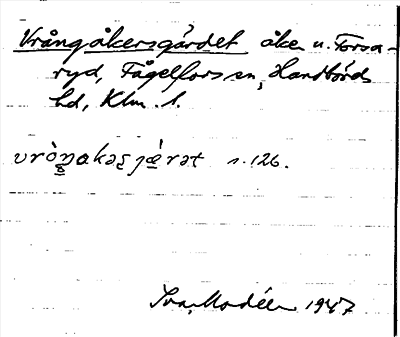 Vrångåkersgärdet åker u. Forsa-
ryd, Fågelfors sn, Handbörds
hd, Klm. l.
vròŋakəʂjæ̀rət s. 126.
Ivar Modéer 1947